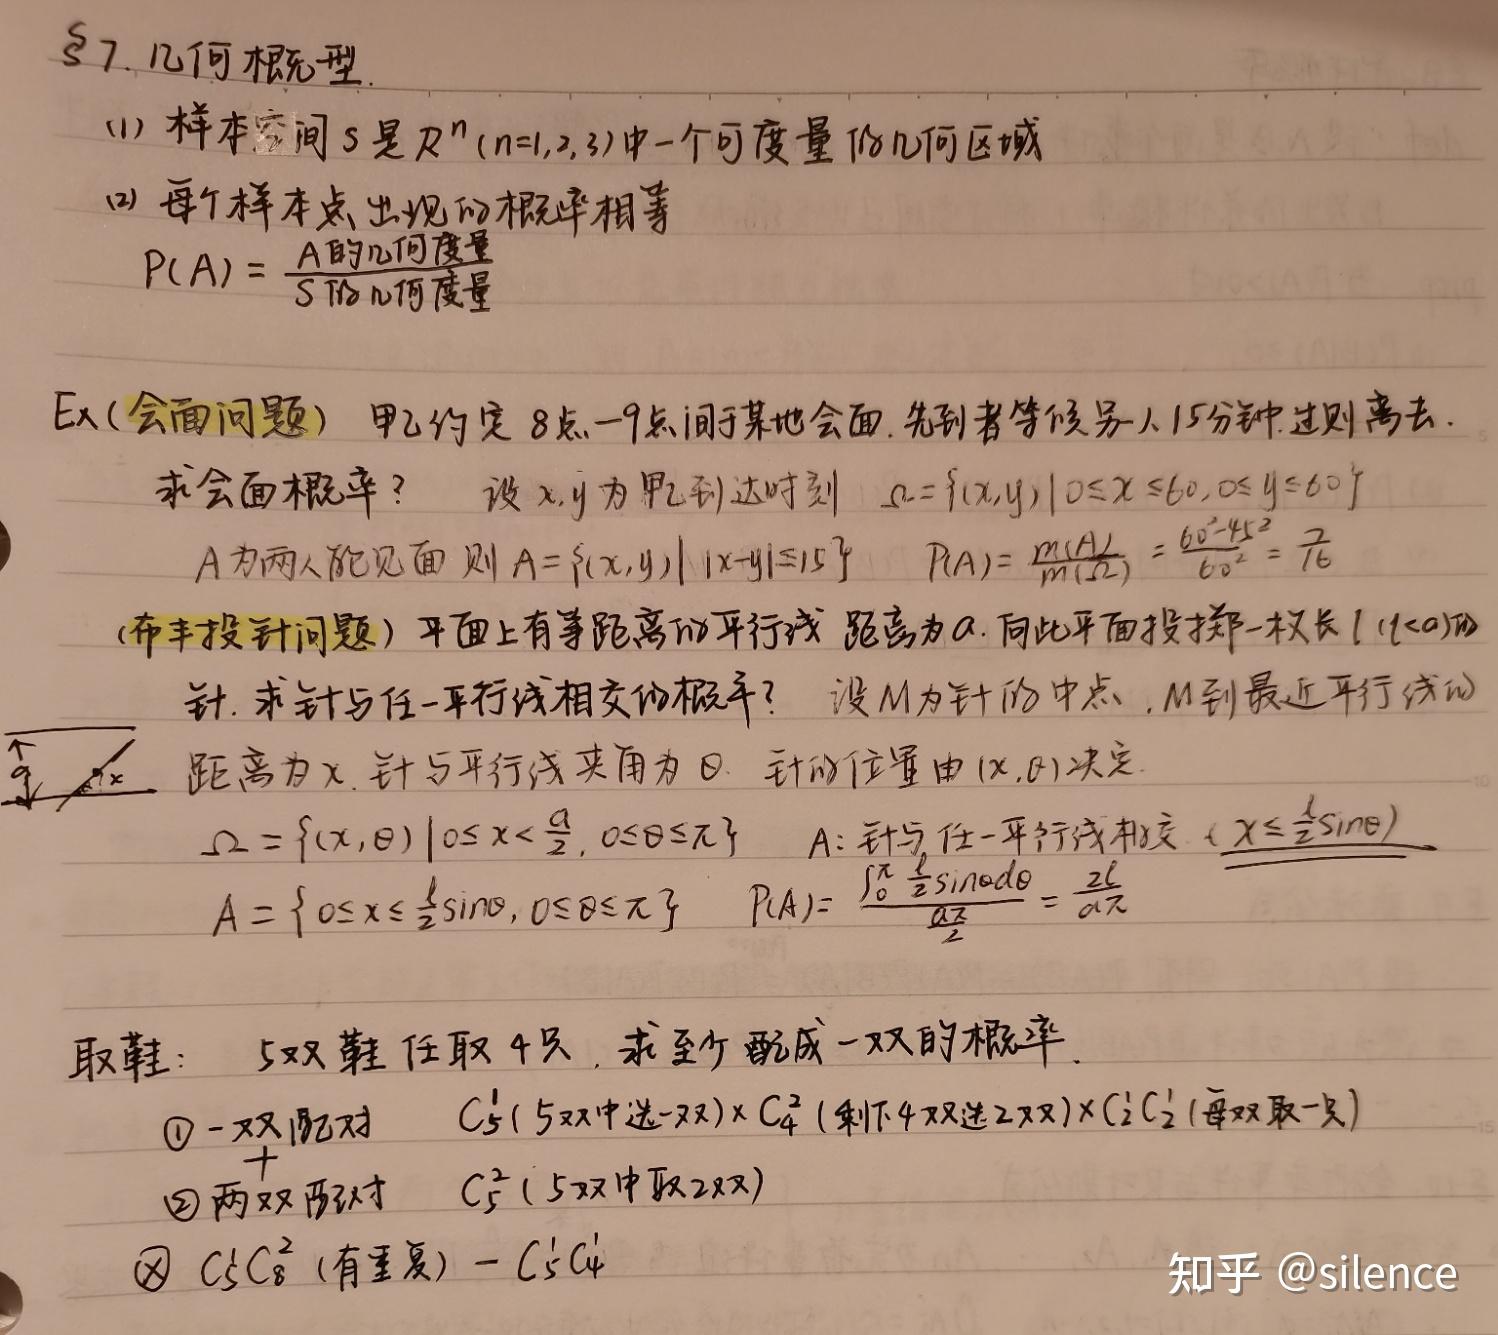 §7. 几何概型.
(1) 样本空间S是Rⁿ(n=1,2,3)中一个可度量的几何区域
(2) 每个样本点出现的概率相等
P(A) = A的几何度量 / S的几何度量
Ex(会面问题) 甲乙约定8点-9点间于某地会面.先到者等候另一人15分钟.过则离去.
求会面概率? 设x,y为甲乙到达时刻 Ω={(x,y)|0≤x≤60,0≤y≤60}
A为两人能见面 则A={(x,y)||x-y|≤15} P(A)= m(A)/m(Ω) = (60²-45²)/60² = 7/16
(布丰投针问题) 平面上有等距离的平行线 距离为a.向此平面投掷一枚长l(l<a)的
针.求针与任一平行线相交的概率? 设M为针的中点,M到最近平行线的
a x 距离为x.针与平行线夹角为θ. 针的位置由(x,θ)决定.
Ω={(x,θ)|0≤x<a/2, 0≤θ≤π} A:针与任一平行线相交.(x≤l/2 sinθ)
A={0≤x≤l/2 sinθ, 0≤θ≤π} P(A)= (∫₀^π l/2 sinθdθ)/(aπ/2) = 2l/aπ
取鞋: 5双鞋任取4只,求至少配成一双的概率.
①一双配对 C₅¹(5双中选一双)×C₄²(剩下4双选2双)×C₂¹C₂¹(每双取一只)
+
②两双配对 C₅²(5双中取2双)
ⓧ C₅¹C₈²(有重复) - C₅¹C₄¹
知乎 @silence